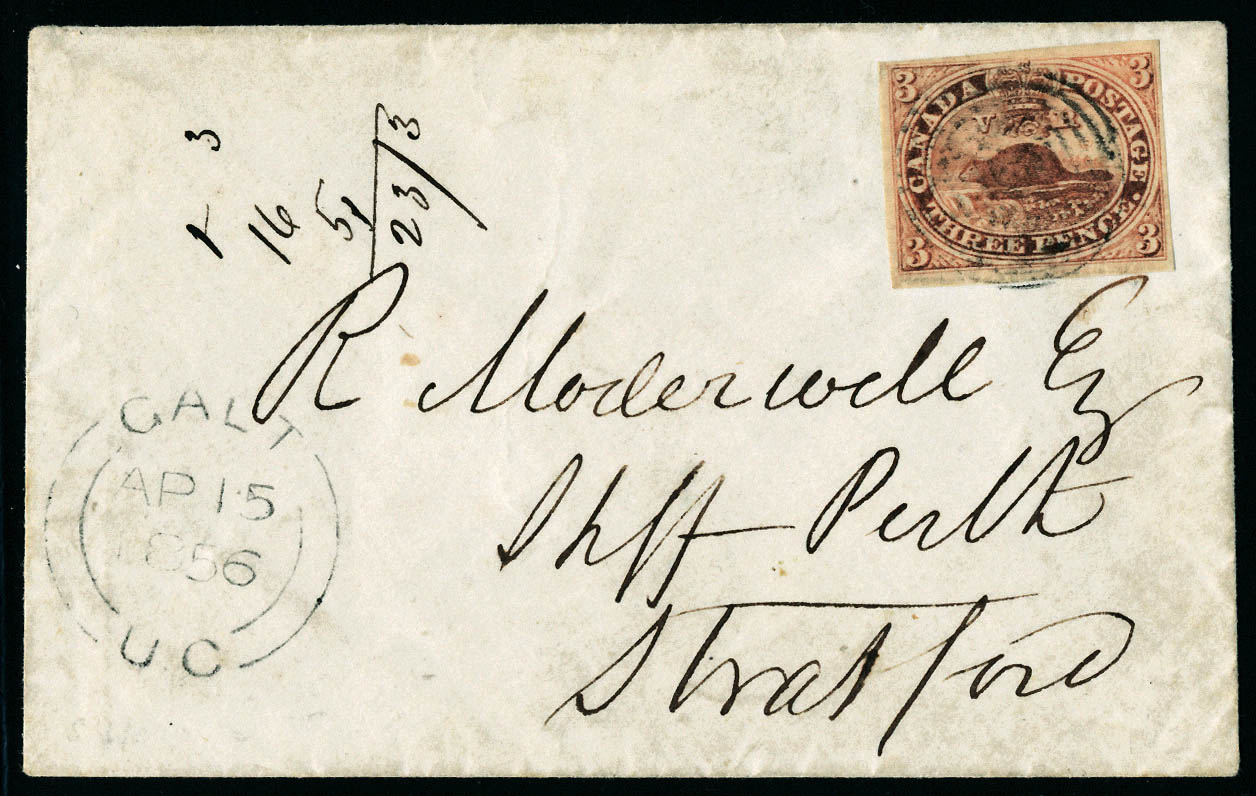 3 CANADA POSTAGE. 3
V R
3 THREE PENCE. 3
3
16
5
23/3
R Moderwell Esq
Shff Perth
Stratford
GALT
AP 15
1856
U.C